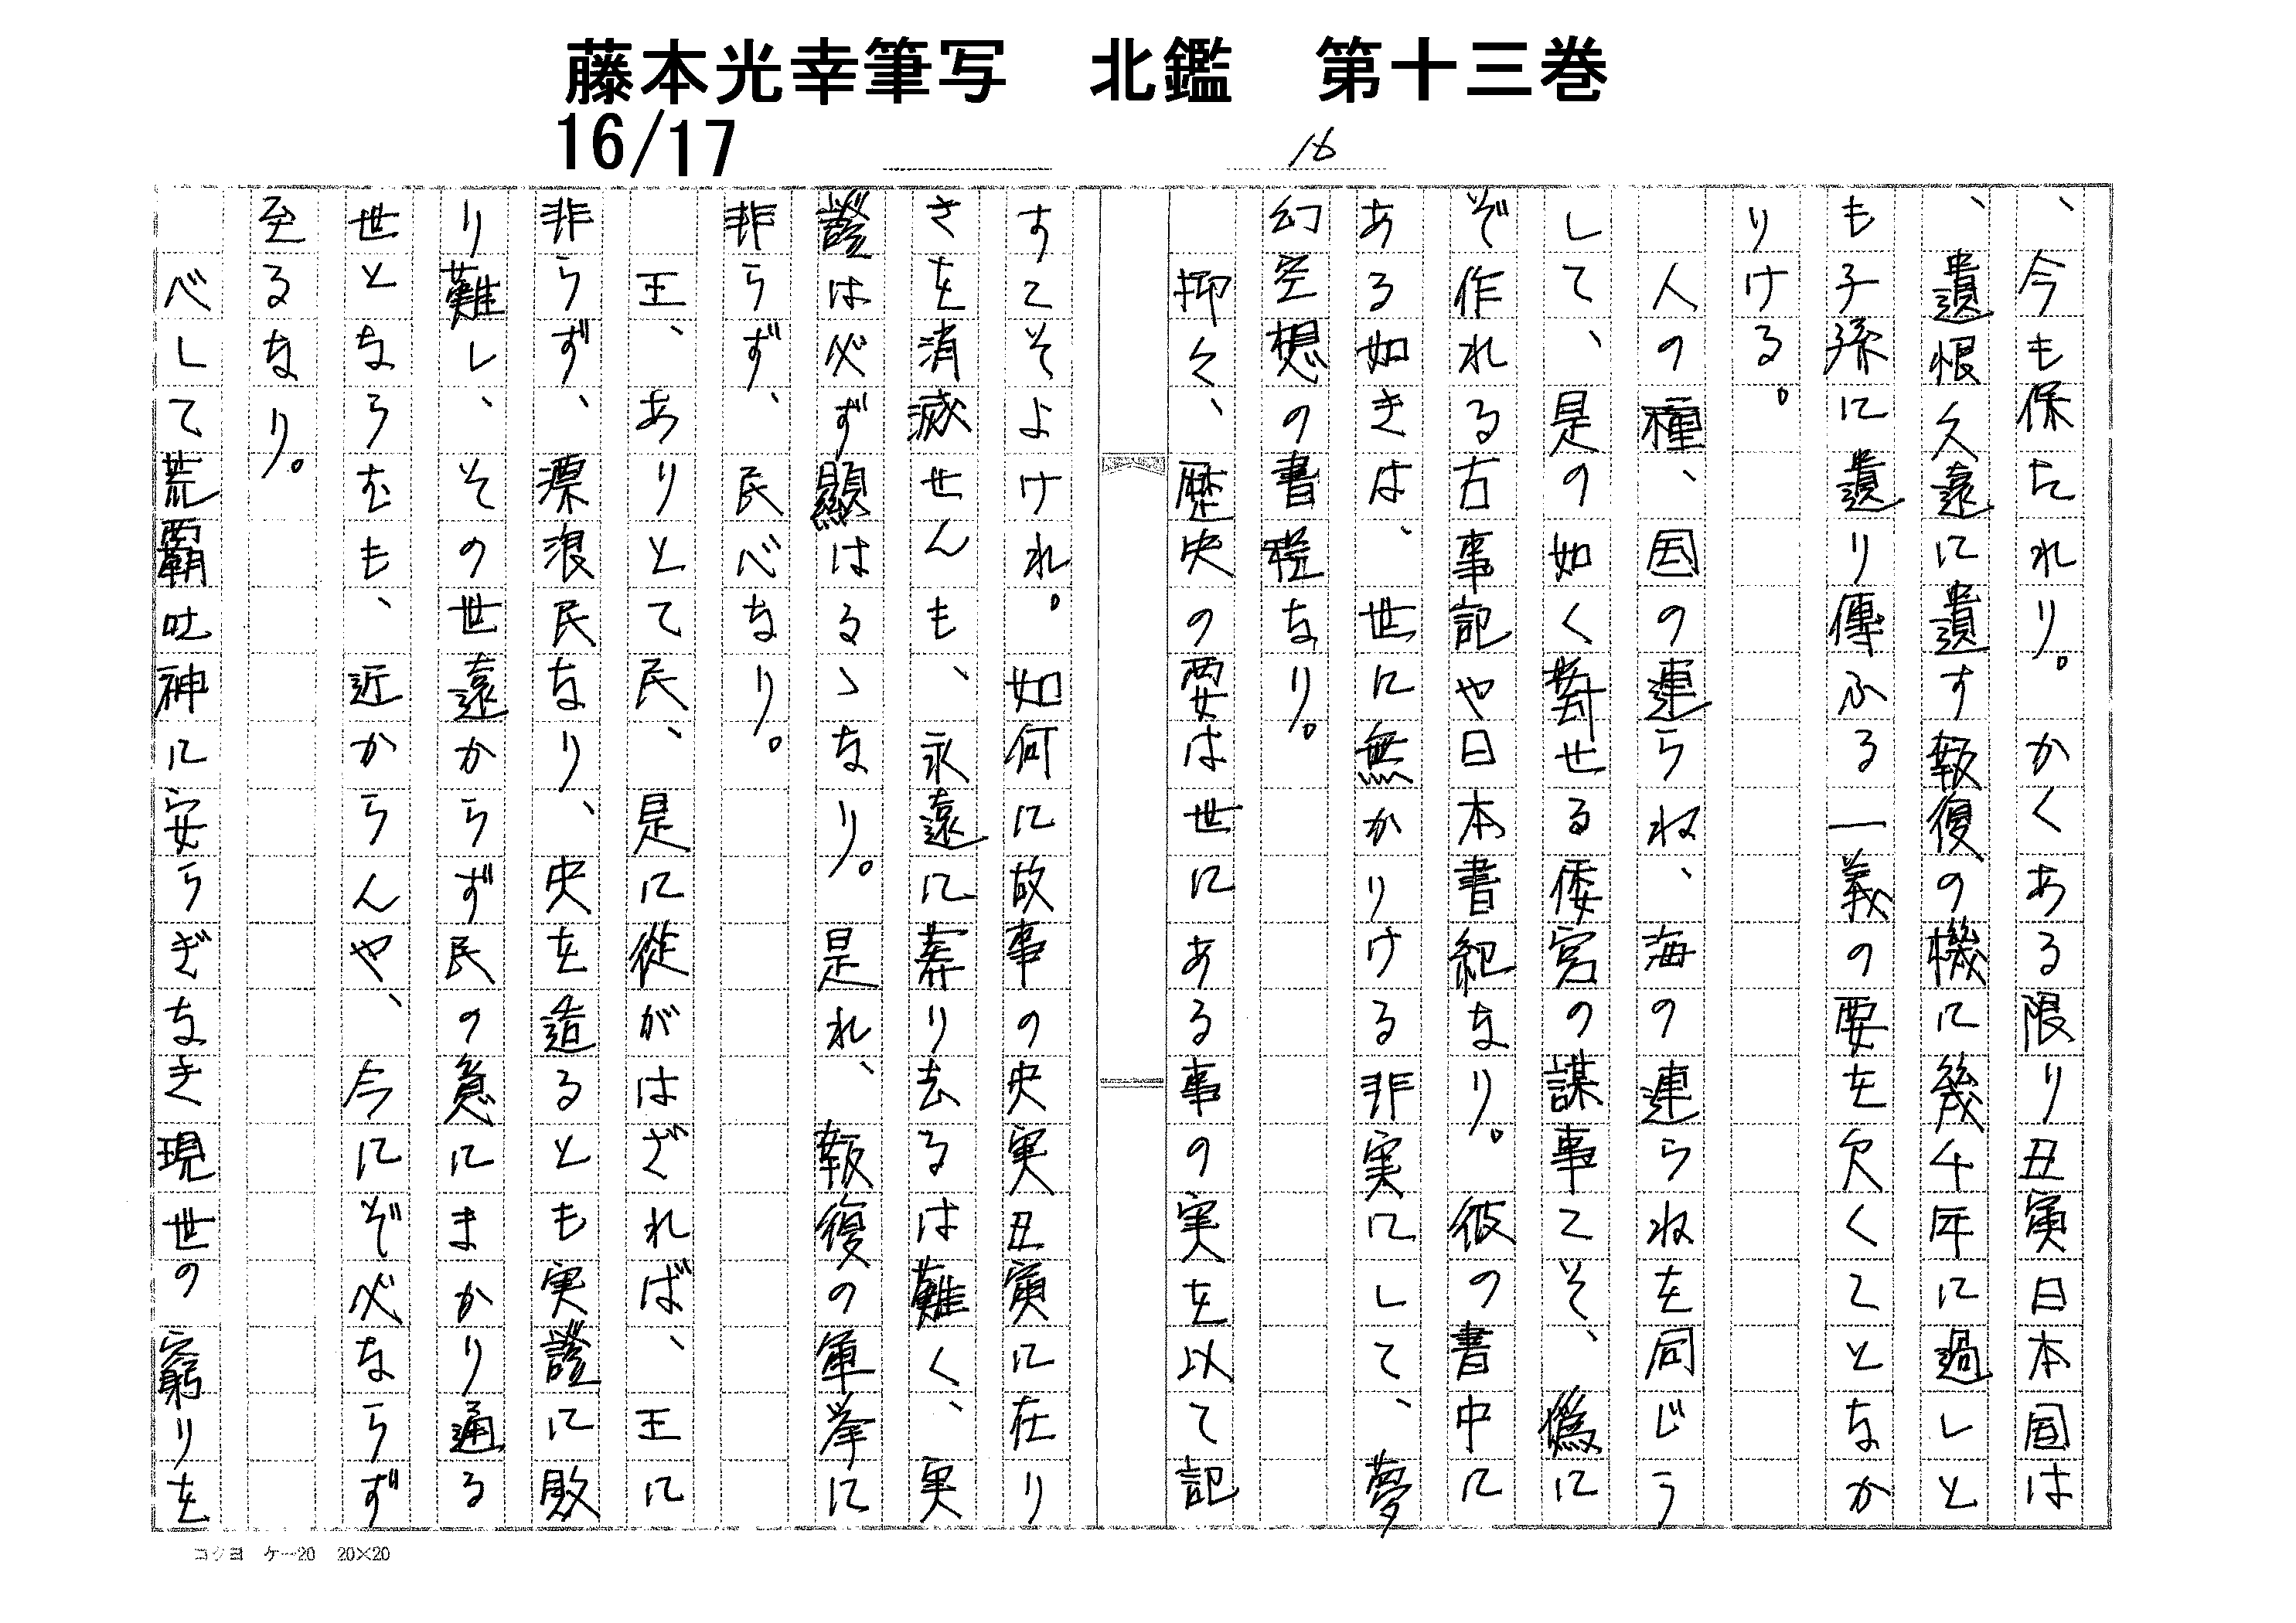 藤本光幸筆写　北鑑　第十三巻
16/17
16
、今も保たれり。かくある限り丑寅日本国は
、遺恨久遠に遺す報復の機に幾千年に過しと
も子孫に遺り傳ふる一義の要を欠くことなか
りける。
　人の種、国の連らね、海の連らねを同じう
して、是の如く對せる倭宮の謀事こそ、偽に
ぞ作れる古事記や日本書紀なり。彼の書中に
ある如きは、世に無かりける非実にして、夢
幻空想の書程なり。
　抑々、歴史の要は世にある事の実を以て記
すこそよけれ。如何に故事の史実丑寅に在り
さを消滅せんも、永遠に葬り去るは難く、実
證は必ず顯はるゝなり。是れ、報復の軍挙に
非らず、民べなり。
　王、ありとて民、是に従がはざれば、王に
非らず、漂浪民なり、史を造るとも実證に敗
り難し、その世遠からず民の意にまかり通る
世となろうむも、近からんや、今にぞ必ならず
至るなり。
　べして荒覇吐神に安らぎなき現世の窮りを
コクヨ　ケー20　20×20